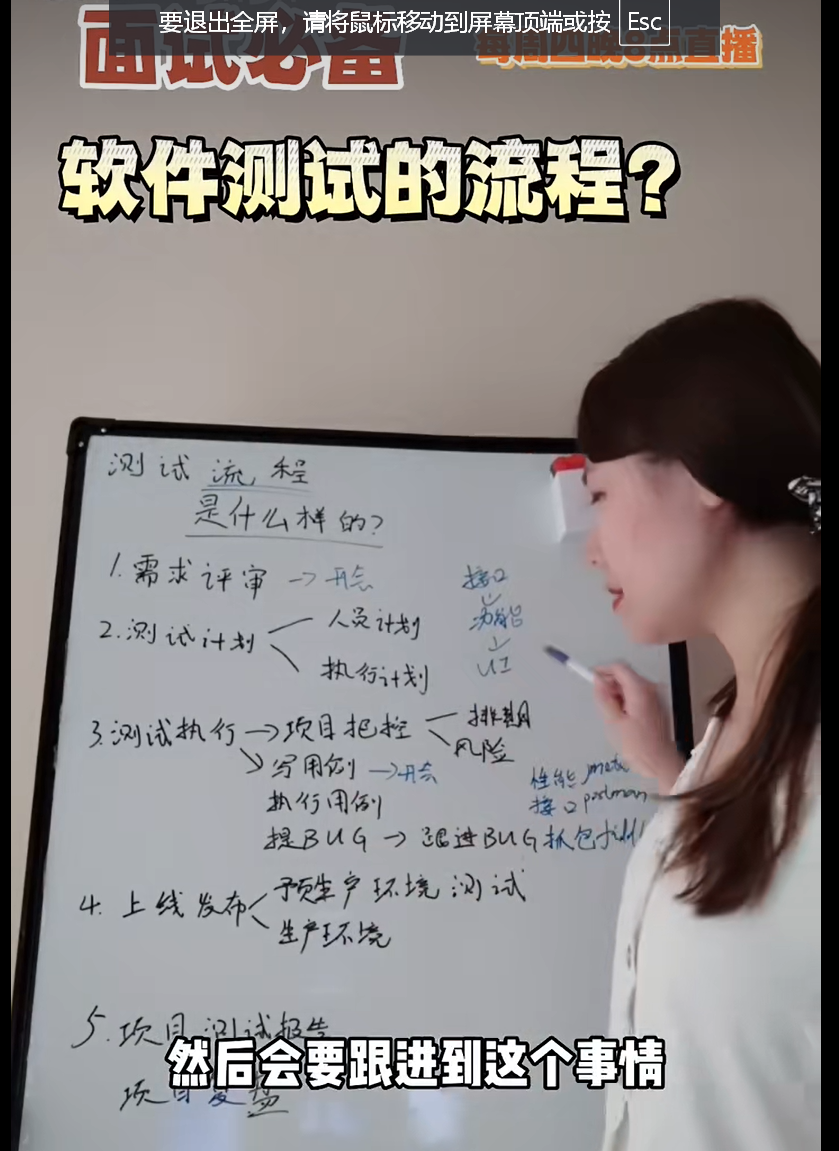 要退出全屏，请将鼠标移动到屏幕顶端或按 Esc
面试必备
每周四晚8点直播
软件测试的流程？
测试流程
是什么样的?
1.需求评审 → 开会
2.测试计划
人员计划
执行计划
接口
功能
UI
3.测试执行 → 项目把控
排期
风险
写用例 → 开会
执行用例
提BUG → 跟进BUG
性能
接口 postman
抓包
4.上线发布
予生产环境测试
生产环境
5.项目测试报告
项目复盘
然后会要跟进到这个事情